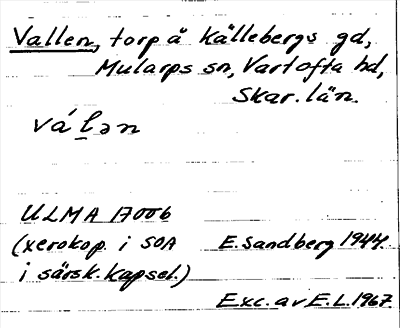 Vallen, torp å Källebergs gd,
Mularps sn, Vartofta hd,
Skar. län.
váḷən
ULMA 17006
(xerokop. i SOA E. Sandberg 1944.
i särsk. kapsel.)
Exc. av E.L. 1967